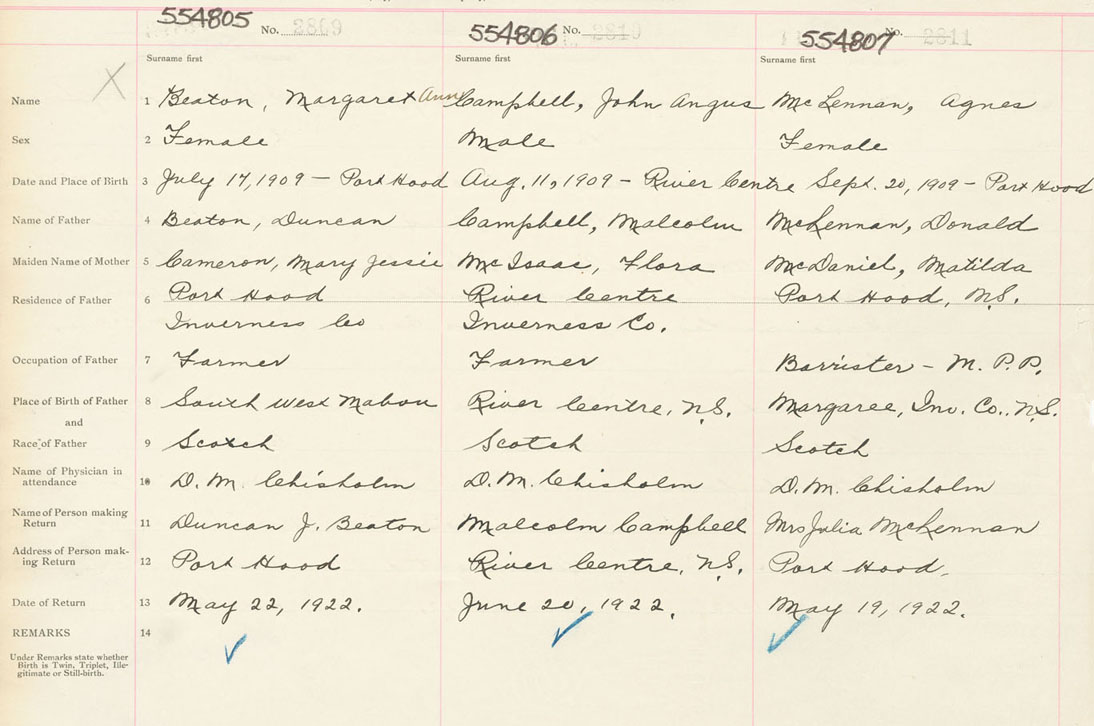 554805 No. 2809 554806 No. 2810 554807 No. 2811
Surname first Surname first Surname first
Name 1 Beaton, Margaret Ann Campbell, John Angus McLennan, Agnes
Sex 2 Female Male Female
Date and Place of Birth 3 July 17, 1909 — Port Hood Aug. 11, 1909 - River Centre Sept. 20, 1909 - Port Hood
Name of Father 4 Beaton, Duncan Campbell, Malcolm McLennan, Donald
Maiden Name of Mother 5 Cameron, Mary Jessie McIsaac, Flora McDaniel, Matilda
Residence of Father 6 Port Hood River Centre Port Hood, N.S.
Inverness Co Inverness Co.
Occupation of Father 7 Farmer Farmer Barrister - M.P.P.
Place of Birth of Father 8 South West Mabou River Centre, N.S. Margaree, Inv. Co., N.S.
and
Race of Father 9 Scotch Scotch Scotch
Name of Physician in
attendance 10 D. M. Chisholm D. M. Chisholm D. M. Chisholm
Name of Person making
Return 11 Duncan J. Beaton Malcolm Campbell Mrs Julia McLennan
Address of Person mak-
ing Return 12 Port Hood River Centre, N.S. Port Hood.
Date of Return 13 May 22, 1922. June 20, 1922. May 19, 1922.
REMARKS 14
Under Remarks state whether
Birth is Twin, Triplet, Ille-
gitimate or Still-birth.